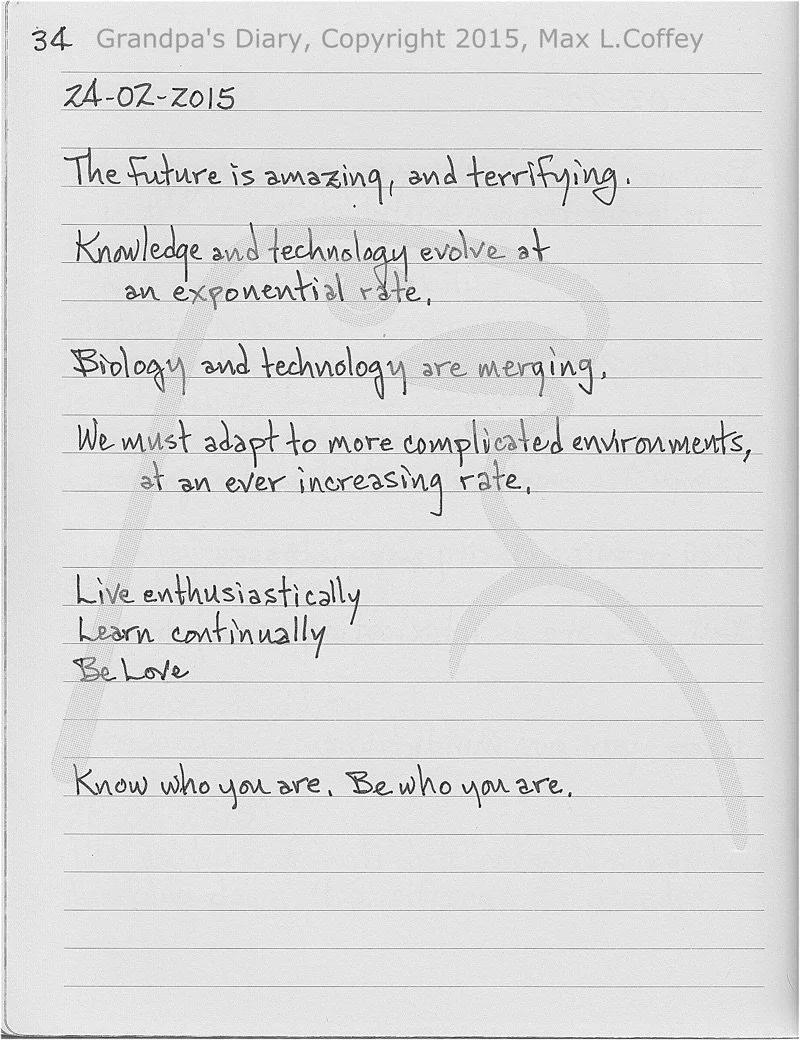 34 Grandpa's Diary, Copyright 2015, Max L.Coffey
24-02-2015
The future is amazing, and terrifying.
Knowledge and technology evolve at
an exponential rate.
Biology and technology are merging.
We must adapt to more complicated environments,
at an ever increasing rate.
Live enthusiastically
Learn continually
Be Love
Know who you are. Be who you are.